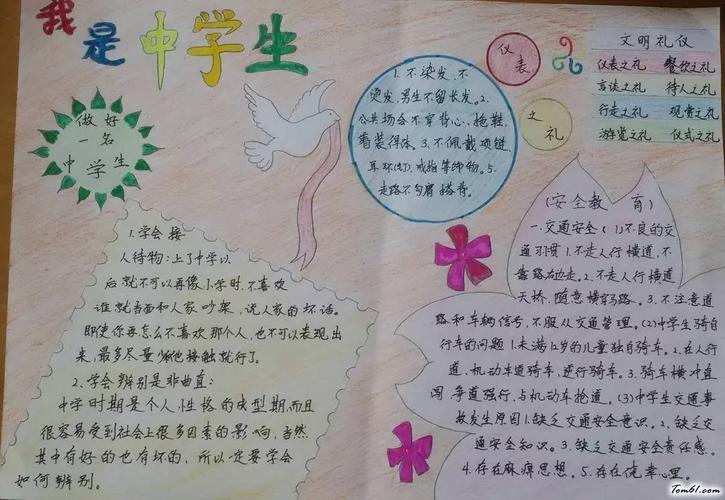 我是中学生
做好
一名
中学生
1.学会接
人待物:上了中学以
后就不可以再像小学时,不喜欢
谁就当面和人家吵架,说人家的坏话。
即使你再怎么不喜欢那个人,也不可以表现出
来,最多尽量少和他接触就行了。
2.学会辨别是非曲直:
中学时期是个人性格的成型期,而且
很容易受到社会上很多因素的影响,当然
其中有好的也有坏的,所以一定要学会
如何辨别。
1.不染发,不
烫发,男生不留长发。2.
公共场合不穿背心、拖鞋,
着装得体。3.不佩戴项链,
耳环(钉),戒指等饰物。5.
走路不勾肩搭背。
仪
表
文
礼
文明礼仪
仪表之礼 餐饮之礼
言谈之礼 待人之礼
行走之礼 观赏之礼
游览之礼 仪式之礼
(安全教育)
一.交通安全 (1)不良的交
通习惯 1.不走人行横道,不
靠路右边走。2.不走人行横道
天桥,随意横穿马路。3.不注意道
路和车辆信号,不服从交通管理。(2)中学生骑自
行车的问题 1.未满12岁的儿童独自骑车。2.在人行
道、机动车道骑车,逆行骑车。3.骑车横冲直
闯,争道强行,与机动车抢道。(3)中学生交通事
故发生原因 1.缺乏交通安全意识。2.缺乏交
通安全知识。3.缺乏交通安全责任感。
4.存在麻痹思想。5.存在侥幸心理。
Tom61.com